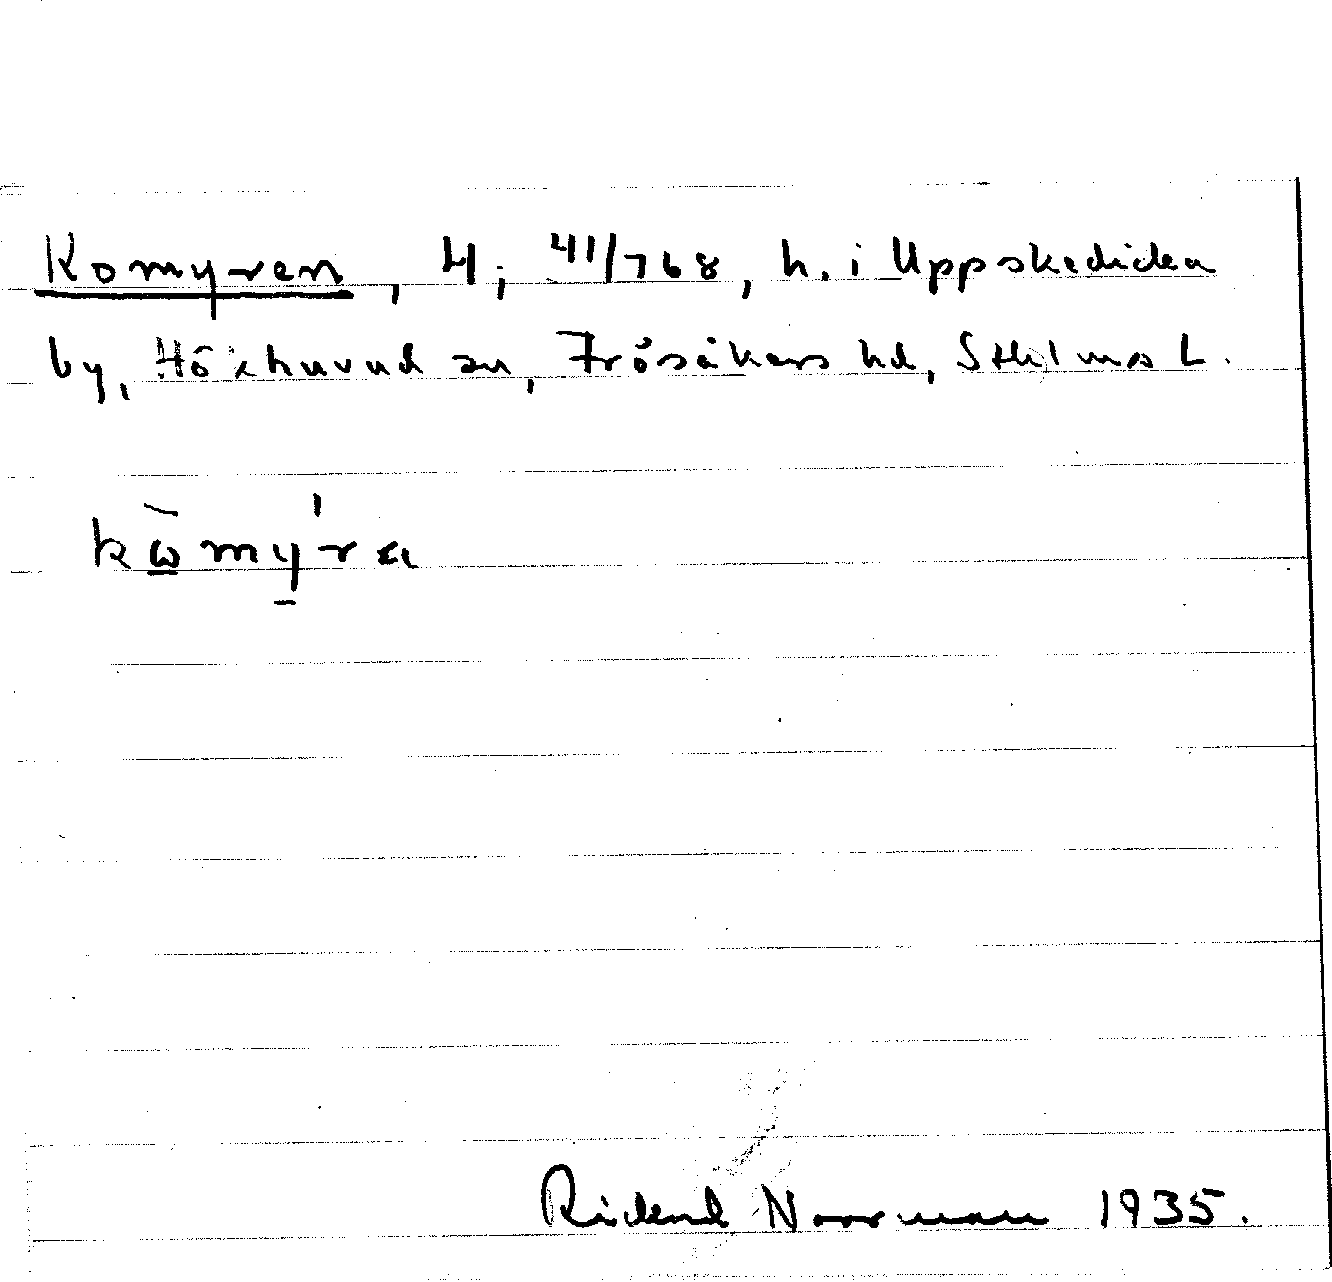 Komyren, 4; 41/768, h. i Uppskedika
by, Hökhuvud sn, Frösåkers hd, Sthlms L.
kò̱mý̱ra
Rickard Norrman 1935.